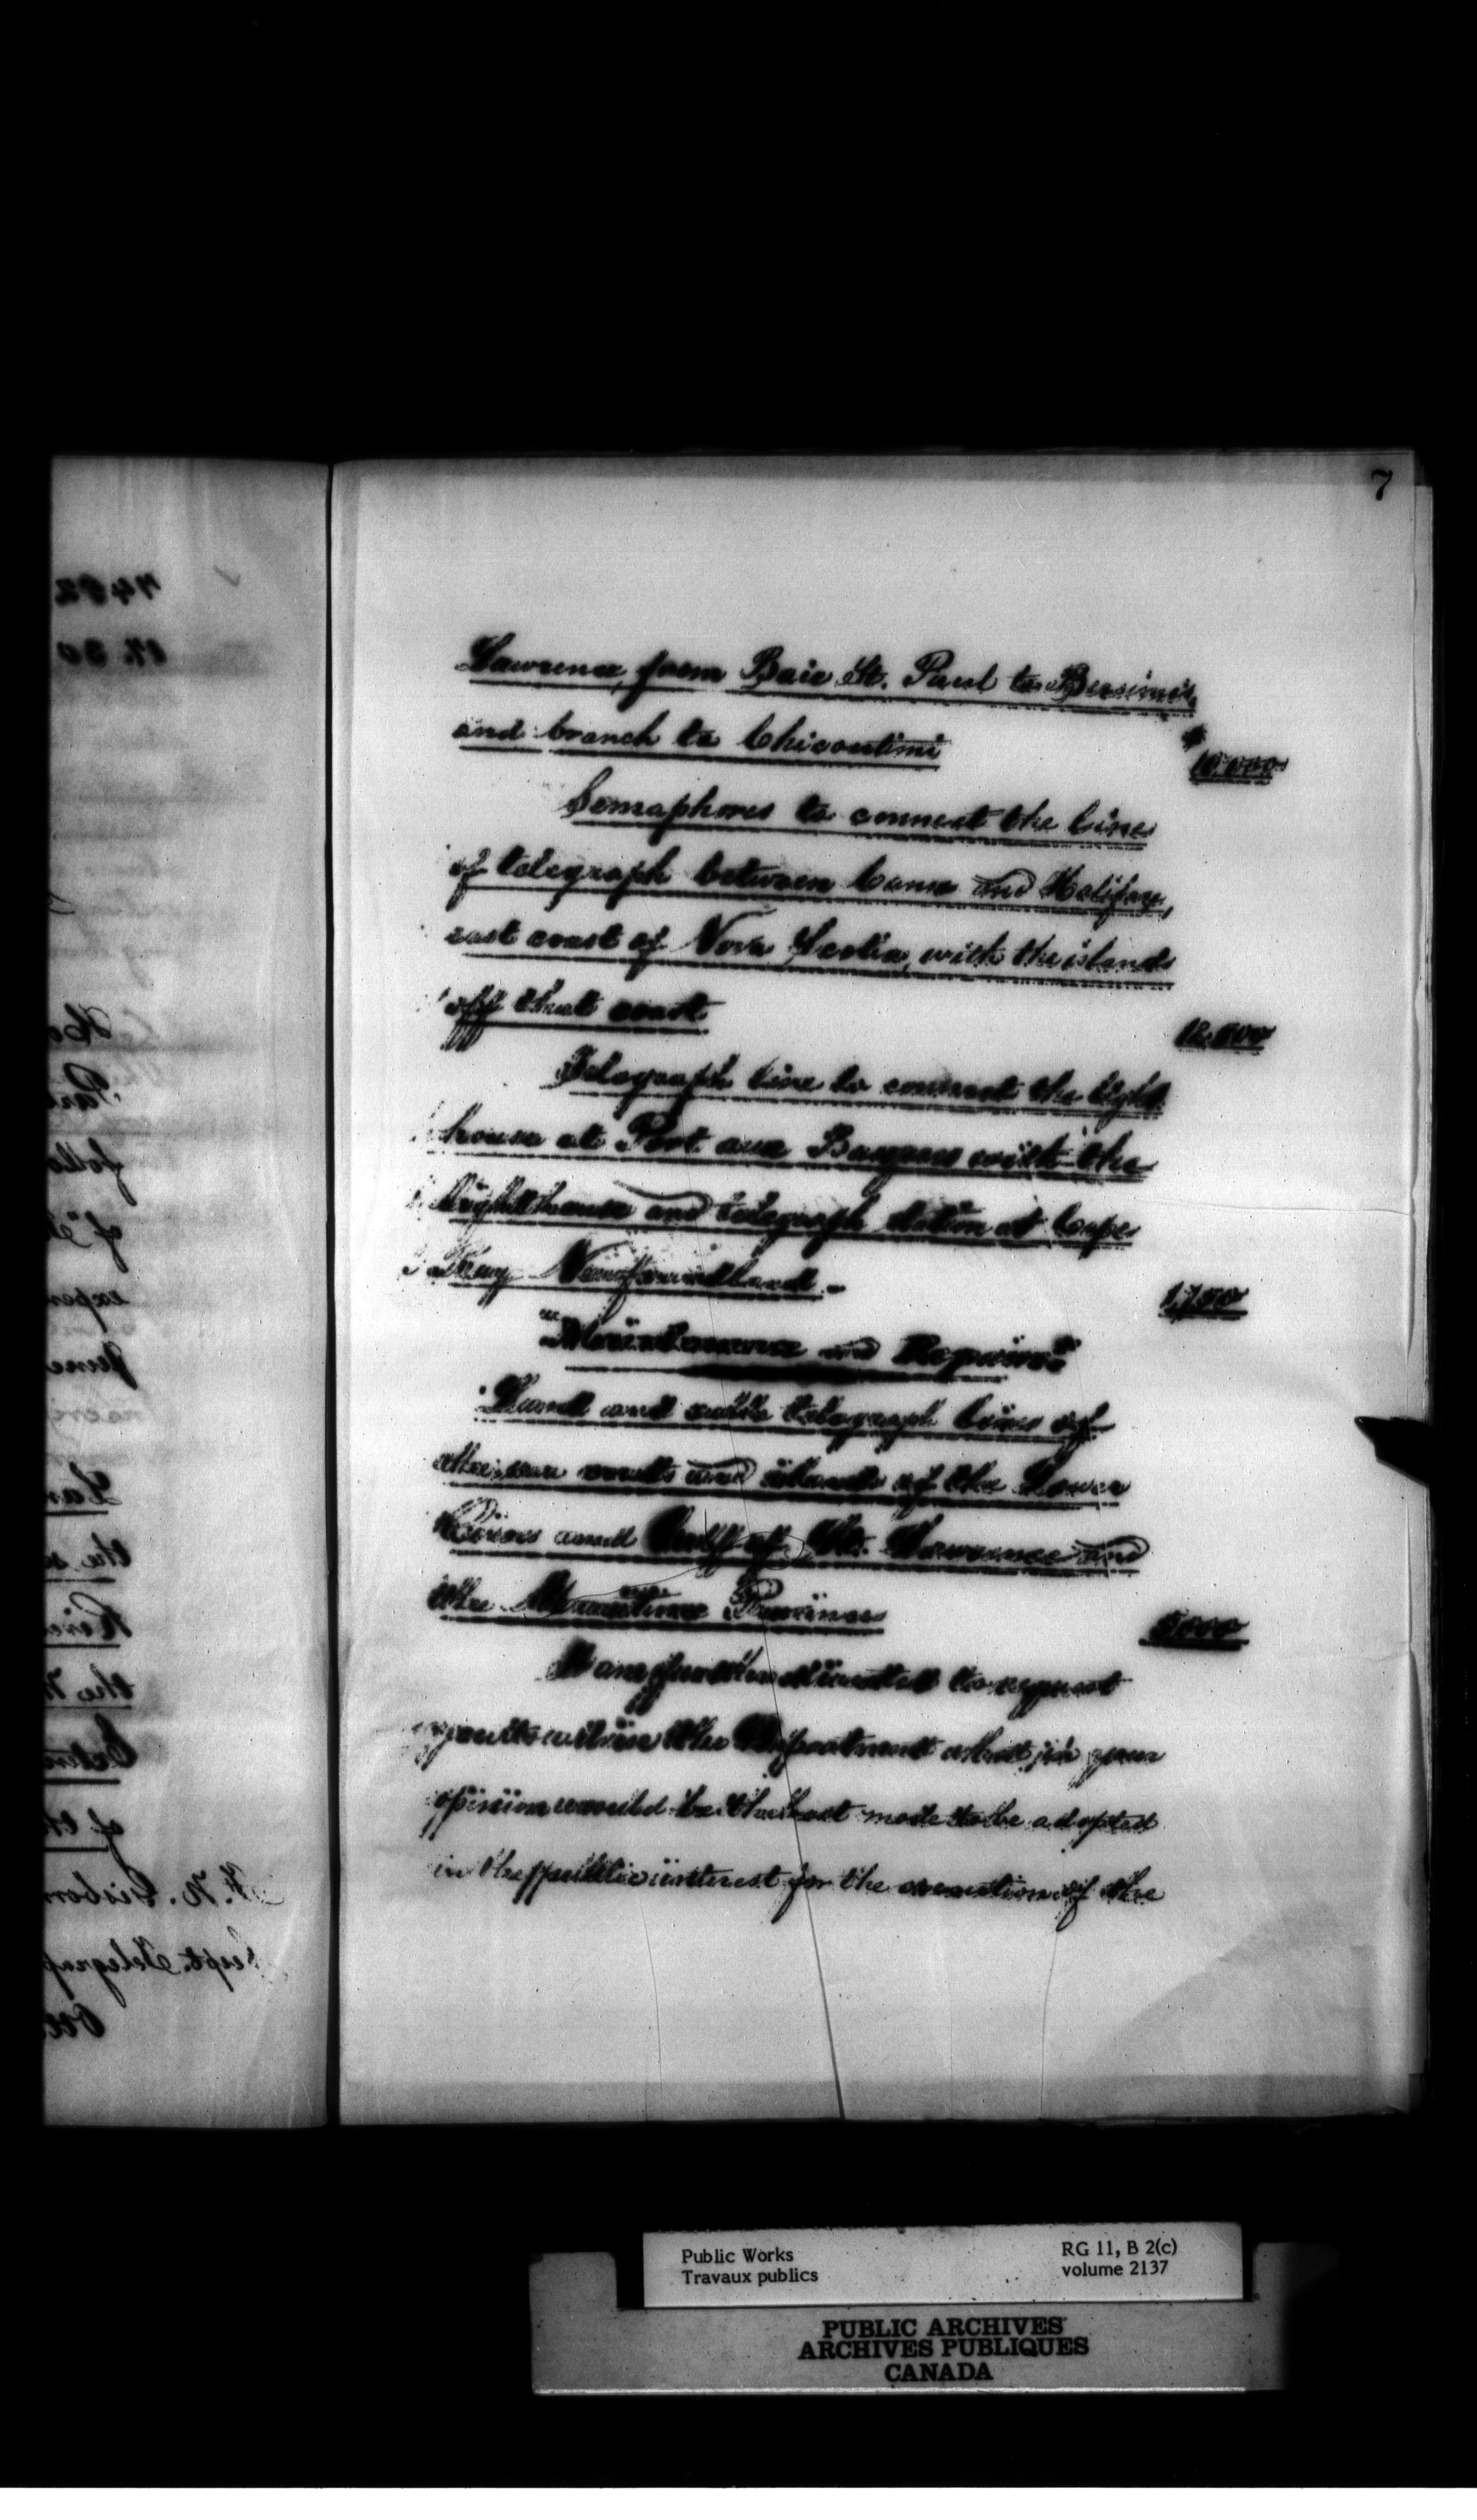 7
Lawrence, from Baie St. Paul to Bersimis,
and branch to Chicoutimi $10.000
Semaphores to connect the line
of telegraph between Canso and Halifax,
east coast of Nova Scotia, with the islands
off that coast
Telegraph line to connect the light
house at Port aux Basques with the
lighthouse and telegraph station at Cape
Ray Newfoundland - 1,700
"Maintenance and Repairs"
Land and cable telegraph lines of
the sea coasts and islands of the Lower
River and Gulf of St. Lawrence and
the Maritime Provinces 5000
I am further directed to request
you to advise the Department what in your
opinion would be the best mode to be adopted
in the public interest for the execution of the
Public Works
Travaux publics
RG 11, B 2(c)
volume 2137
PUBLIC ARCHIVES
ARCHIVES PUBLIQUES
CANADA